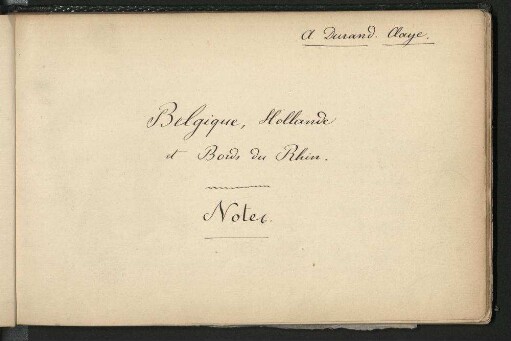 A Durand. Claye.
Belgique, Hollande
et Bords du Rhin.
Notes.